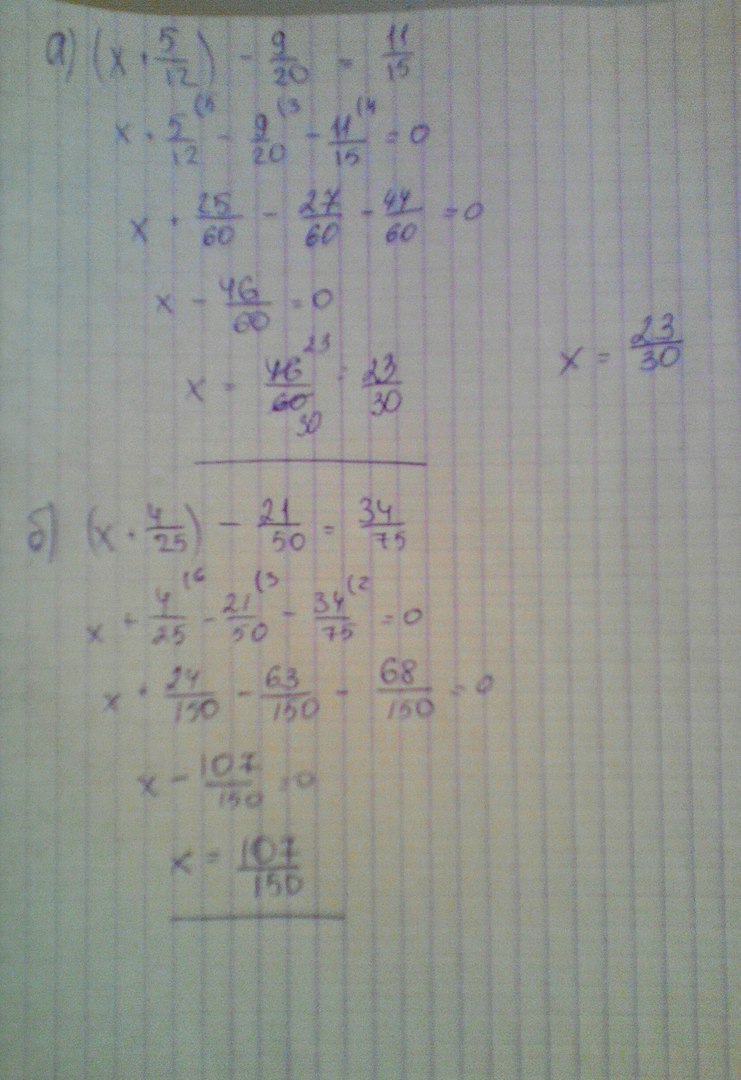 а) (x · 5/12) - 9/20 = 11/15
x · 5/12 (5 - 9/20 (3 - 11/15 (4 = 0
x · 25/60 - 27/60 - 44/60 = 0
x - 46/60 = 0
x = 46/60 23 30 = 23/30
x = 23/30
б) (x · 4/25) - 21/50 = 34/75
x + 4/25 (6 - 21/50 (3 - 34/75 (2 = 0
x · 24/150 - 63/150 - 68/150 = 0
x - 107/150 = 0
x = 107/150